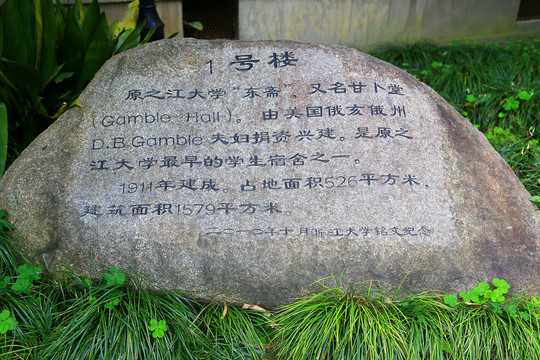 1号楼
原之江大学“东斋”，又名甘卜堂
(Gamble Hall)。由美国俄亥俄州
D.B.Gamble夫妇捐资兴建。是原之
江大学最早的学生宿舍之一。
1911年建成。占地面积526平方米，
建筑面积1579平方米。
二〇一〇年十月浙江大学铭文纪念